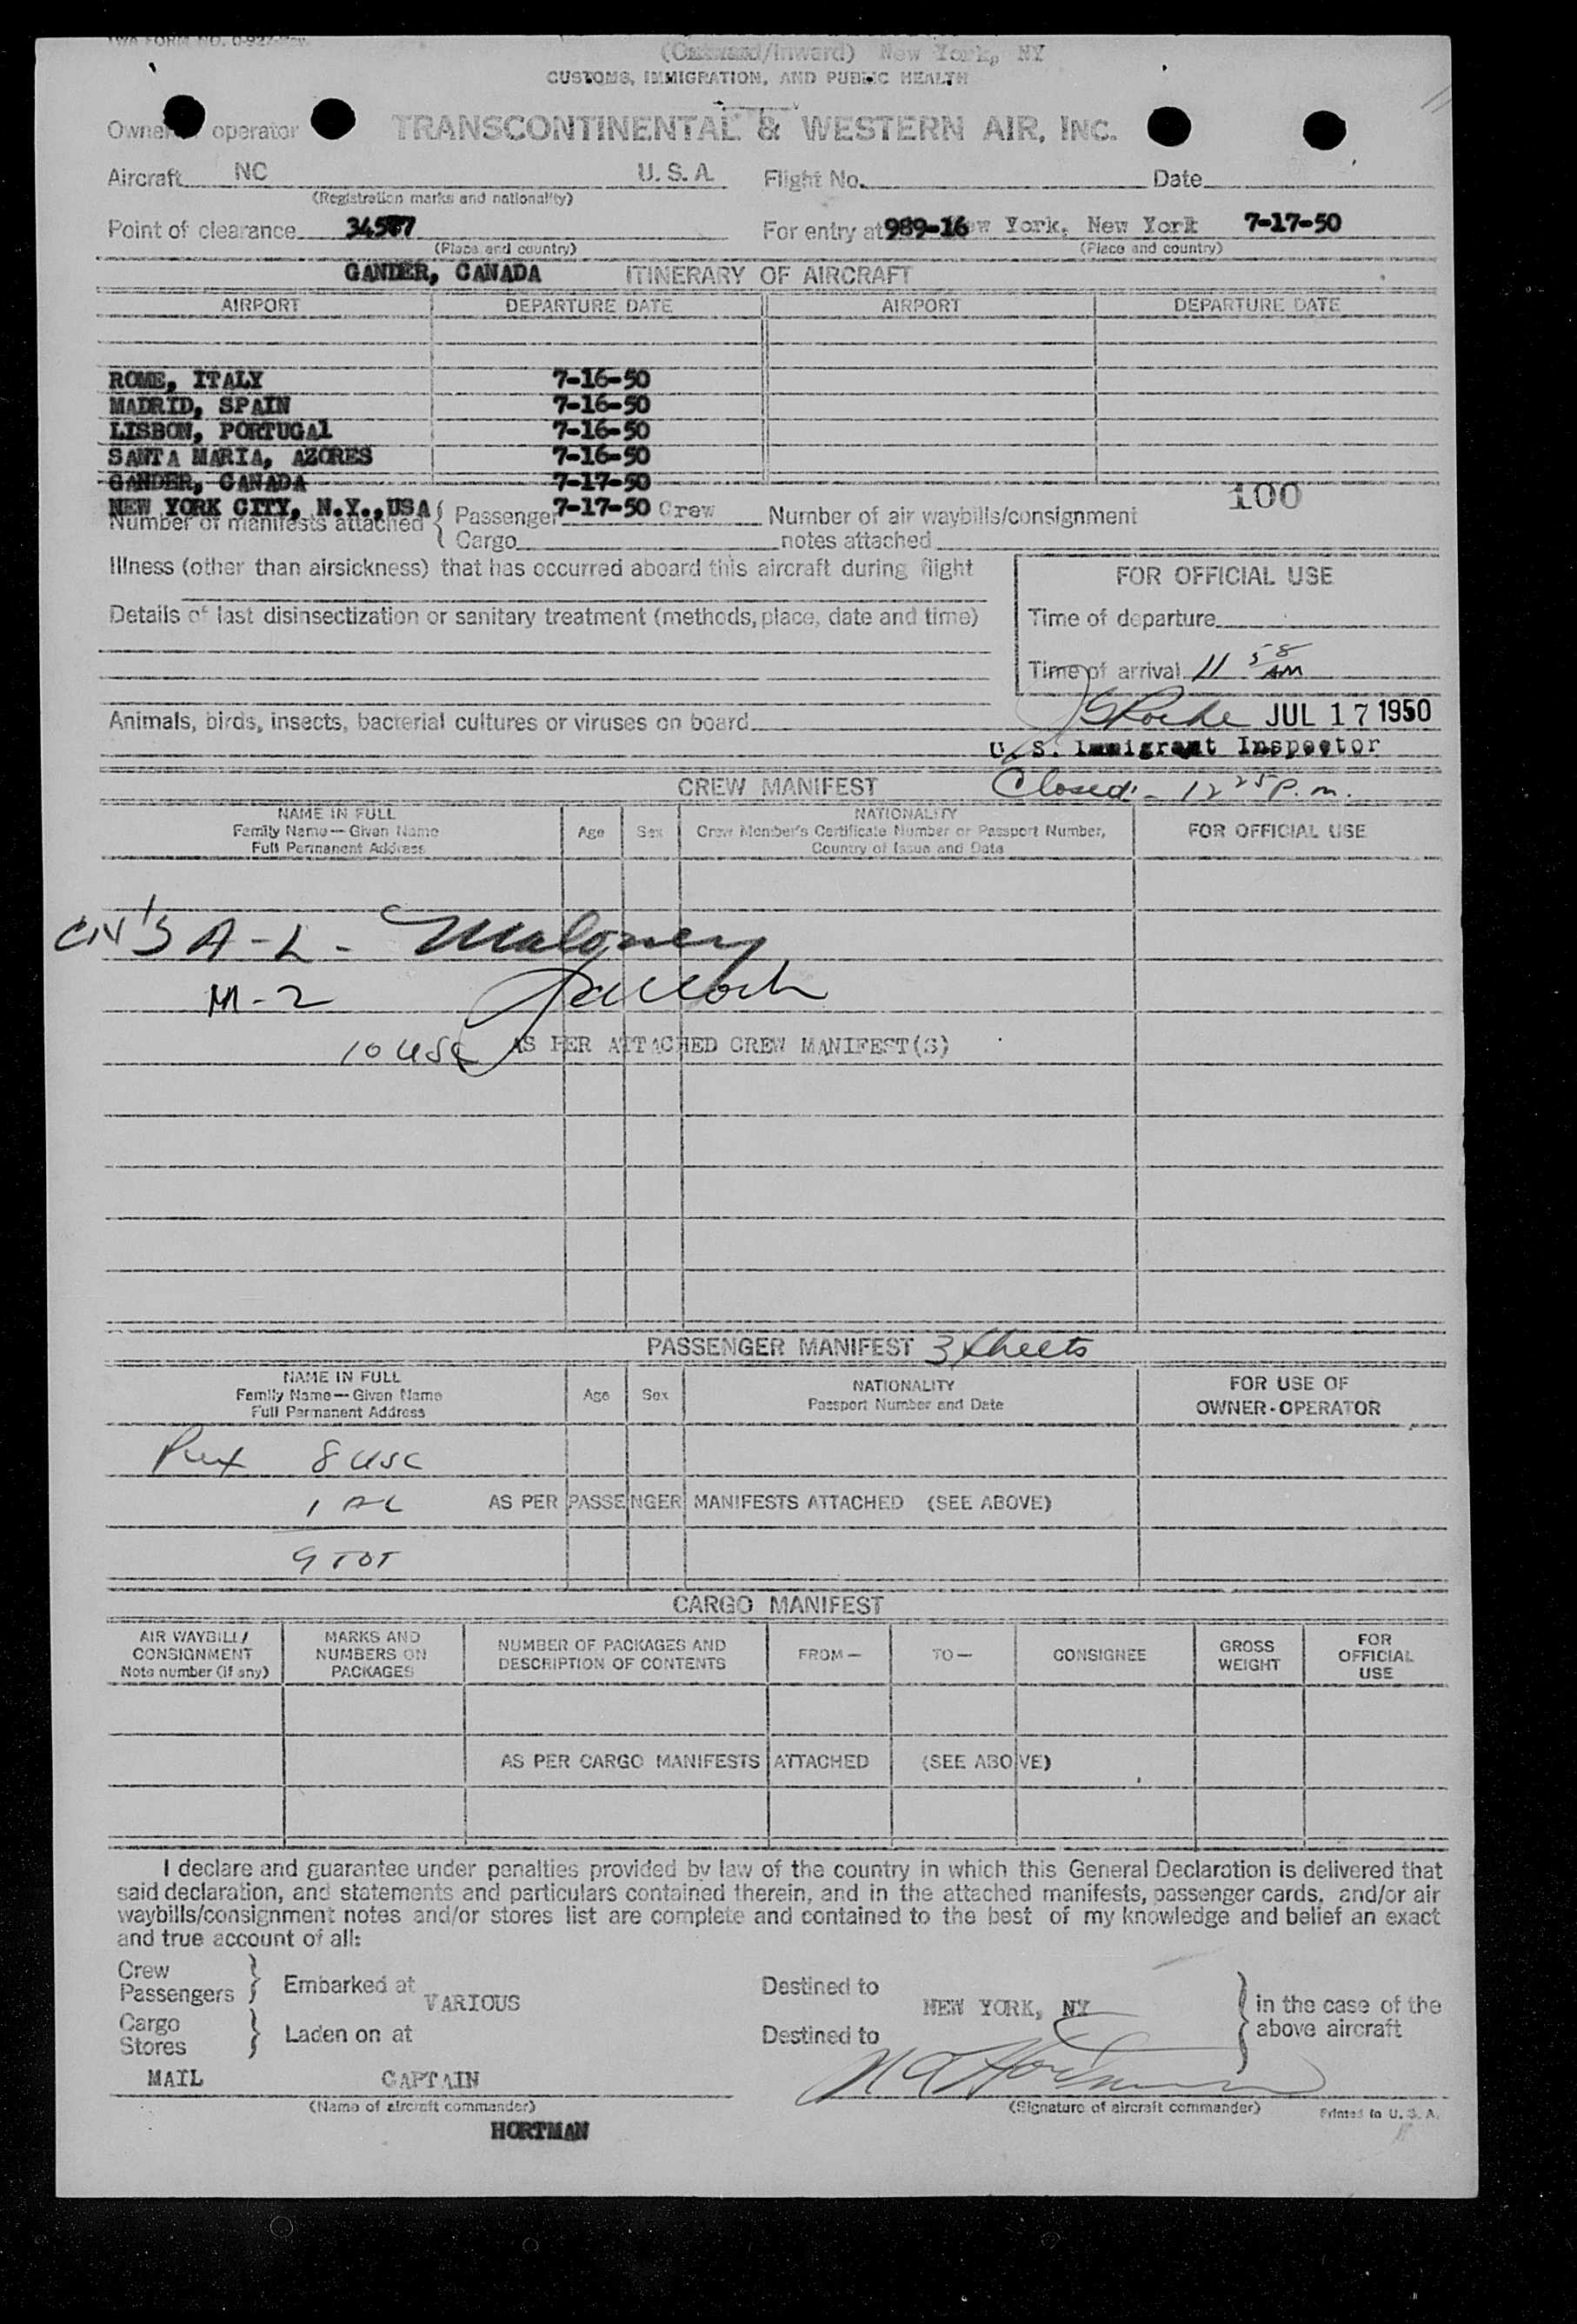 TWA FORM NO. 0-927-Rev.
(Outward/Inward) New York, NY
CUSTOMS, IMMIGRATION, AND PUBLIC HEALTH
Owner operator TRANSCONTINENTAL & WESTERN AIR, INC.
Aircraft NC U.S.A. Flight No. Date
(Registration marks and nationality)
Point of clearance 34577 For entry at 989-16 New York, New York 7-17-50
(Place and country) (Place and country)
GANDER, CANADA ITINERARY OF AIRCRAFT
AIRPORT DEPARTURE DATE AIRPORT DEPARTURE DATE
ROME, ITALY 7-16-50
MADRID, SPAIN 7-16-50
LISBON, PORTUGAl 7-16-50
SANTA MARIA, AZORES 7-16-50
GANDER, CANADA 7-17-50
NEW YORK CITY, N.Y., USA 7-17-50 100
Number of manifests attached { Passenger Crew Number of air waybills/consignment
Cargo notes attached
Illness (other than airsickness) that has occurred aboard this aircraft during flight
FOR OFFICIAL USE
Details of last disinsectization or sanitary treatment (methods, place, date and time)
Time of departure
Time of arrival 11 58 AM
Animals, birds, insects, bacterial cultures or viruses on board
JUL 17 1950
U. S. Immigrant Inspector
CREW MANIFEST Closed - 12 25 P.m.
NAME IN FULL
Family Name — Given Name
Full Permanent Address
Age Sex
NATIONALITY
Crew Member's Certificate Number or Passport Number,
Country of Issue and Date
FOR OFFICIAL USE
A-L - Maloney
M-2
10 USC AS PER ATTACHED CREW MANIFEST(S)
PASSENGER MANIFEST 3 sheets
NAME IN FULL
Family Name — Given Name
Full Permanent Address
Age Sex
NATIONALITY
Passport Number and Date
FOR USE OF
OWNER-OPERATOR
8 USC
1 AL AS PER PASSENGER MANIFESTS ATTACHED (SEE ABOVE)
9 TOT
CARGO MANIFEST
AIR WAYBILL/
CONSIGNMENT
Note number (if any)
MARKS AND
NUMBERS ON
PACKAGES
NUMBER OF PACKAGES AND
DESCRIPTION OF CONTENTS
FROM — TO — CONSIGNEE
GROSS
WEIGHT
FOR
OFFICIAL
USE
AS PER CARGO MANIFESTS ATTACHED (SEE ABOVE)
I declare and guarantee under penalties provided by law of the country in which this General Declaration is delivered that
said declaration, and statements and particulars contained therein, and in the attached manifests, passenger cards, and/or air
waybills/consignment notes and/or stores list are complete and contained to the best of my knowledge and belief an exact
and true account of all:
Crew
Passengers } Embarked at VARIOUS Destined to NEW YORK, NY } in the case of the
above aircraft
Cargo
Stores } Laden on at Destined to
MAIL CAPTAIN
(Name of aircraft commander) (Signature of aircraft commander) Printed in U. S. A.
HORTMAN